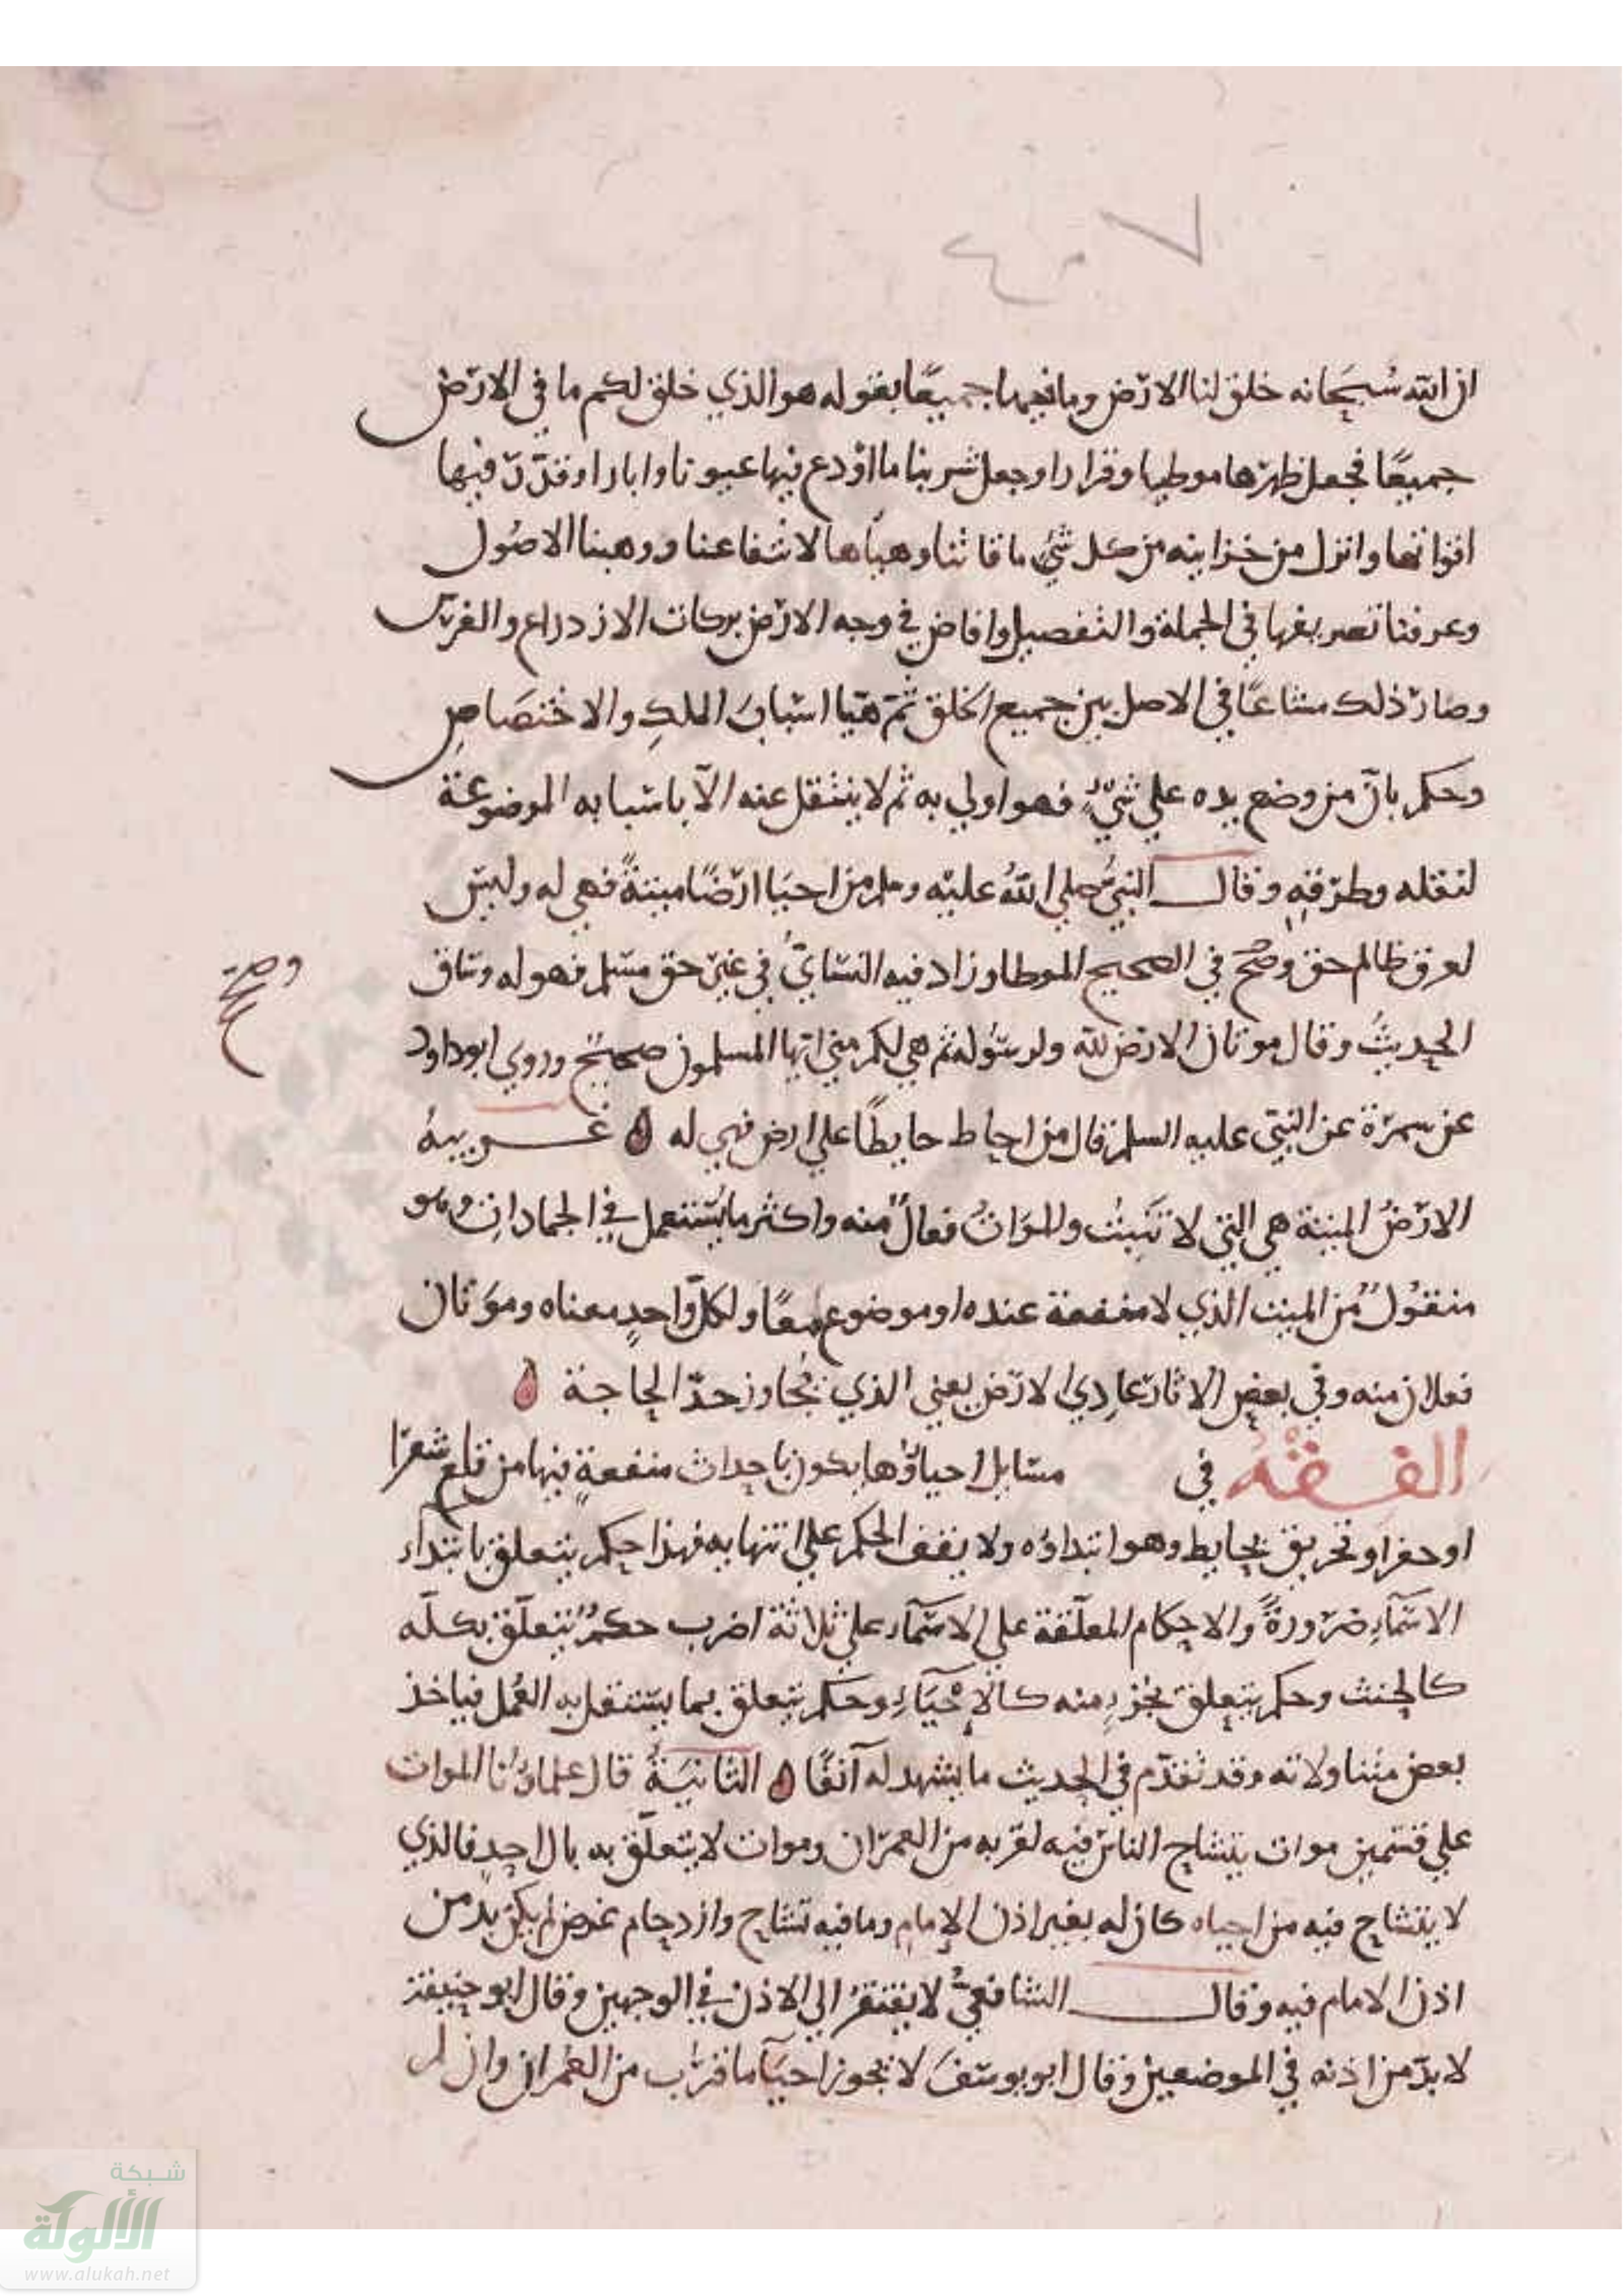 ان الله سُبحَانه خلق لنا الارض وما فيها جميعًا بقوله هو الذي خلق لكم ما في الارض
جميعًا فجعل ظهرها موطيا وقرارا وجعل شربنا ما اوْدع فيها عيونا وابارا وقدّر فيها
اقواتها وانزل من خزاينه من كل شيْ ما فاتنا وهيأها لانتفاعنا ووهبنا الاصُول
وعرفنا تصريفها في الجملة والتفصيل وافاض في وجه الارض بركات الازدراع والغرس
وصار ذلك مشاعًا في الاصل بين جميع الخلق ثمّ هيّا اسْبابَ الملكِ والاختصَاصِ
وحكم بانّ من وضع يده علي شيْءٍ فهو اولي به ثم لا ينتقل عنه الاّ باسبابه الموضوعة
لنقله وطرقه وقال النبيُّ صلي اللهُ عليْه وسلم من احيَا ارْضًا ميتةً فهي له وليس
لعرق ظالم حق وصَحَّ في الصحيح الموطا وزاد فيه النسَايُّ في غير حق مسْلم فهو له وساق
وصح
الحديثُ وقال موتان الارض لله ولرسُوله ثم هي لكم مني ايها المسلمون صحيحٌ وروي ابو داود
عن سمرة عن النبيّ عليه السلم قال من احاط حايطًا علي ارض فهي له غريبهُ
الارْضُ الميتة هي التي لا تَنبتُ والموَاتُ فعالٌ منه واكثر ما يُسْتعمل في الجماداتِ وهو
منقوُلٌ من الميت الذي لا منفعة عنده او موضوع معًا ولكلّ واحدٍ معناه وموَتان
فعلان منه وفي بعض الاثار عادِي الارض يعني الذي تجاوز حدّ الحاجة
الفقْهُ في مسَايل احياؤها يكون باحداث منفعةٍ فيها من قلع شعرا
او حفر او تحريق بحايط وهو ابتداؤه ولا يقف الحكم علي انتهايه فهذا حكم يتعلق بابتداء
الاسْمآءِ ضرورةً والاحكام المعلّقة علي الاسْمآء علي ثلاثة اضرب حكمٌ يتعلّق بكلّه
كالحنث وحكم يتعلق بجزءٍ منه كالاِحْيَاءِ وحكم يتعلق بما يسْتقل به العُمل فياخذ
بعض متناولاته وقد تقدّم في الحديث ما يشهد له آنفًا الثانيَةُ قال علماؤنا الموات
علي قسْمين موات يتشاح الناس فيه لقربه من العمْران وموات لا يتعلّق به بال احدٍ فالذي
لا يتشاح فيه من احياه كان له بغير اذن الاِمام وما فيه تشاح وازدحام غرض لم يكن بدّ من
اذن الامام فيه وقال الشافعيُّ لا يفتقرُ الي الاذن في الوجهين وقال ابو حنيفة
لا بدّ من اذنه في الموضعين وقال ابو يوسُفَ لا يجوز احيَآ ما قرُب من العمران وان لم
شبكة
الألوكة
www.alukah.net